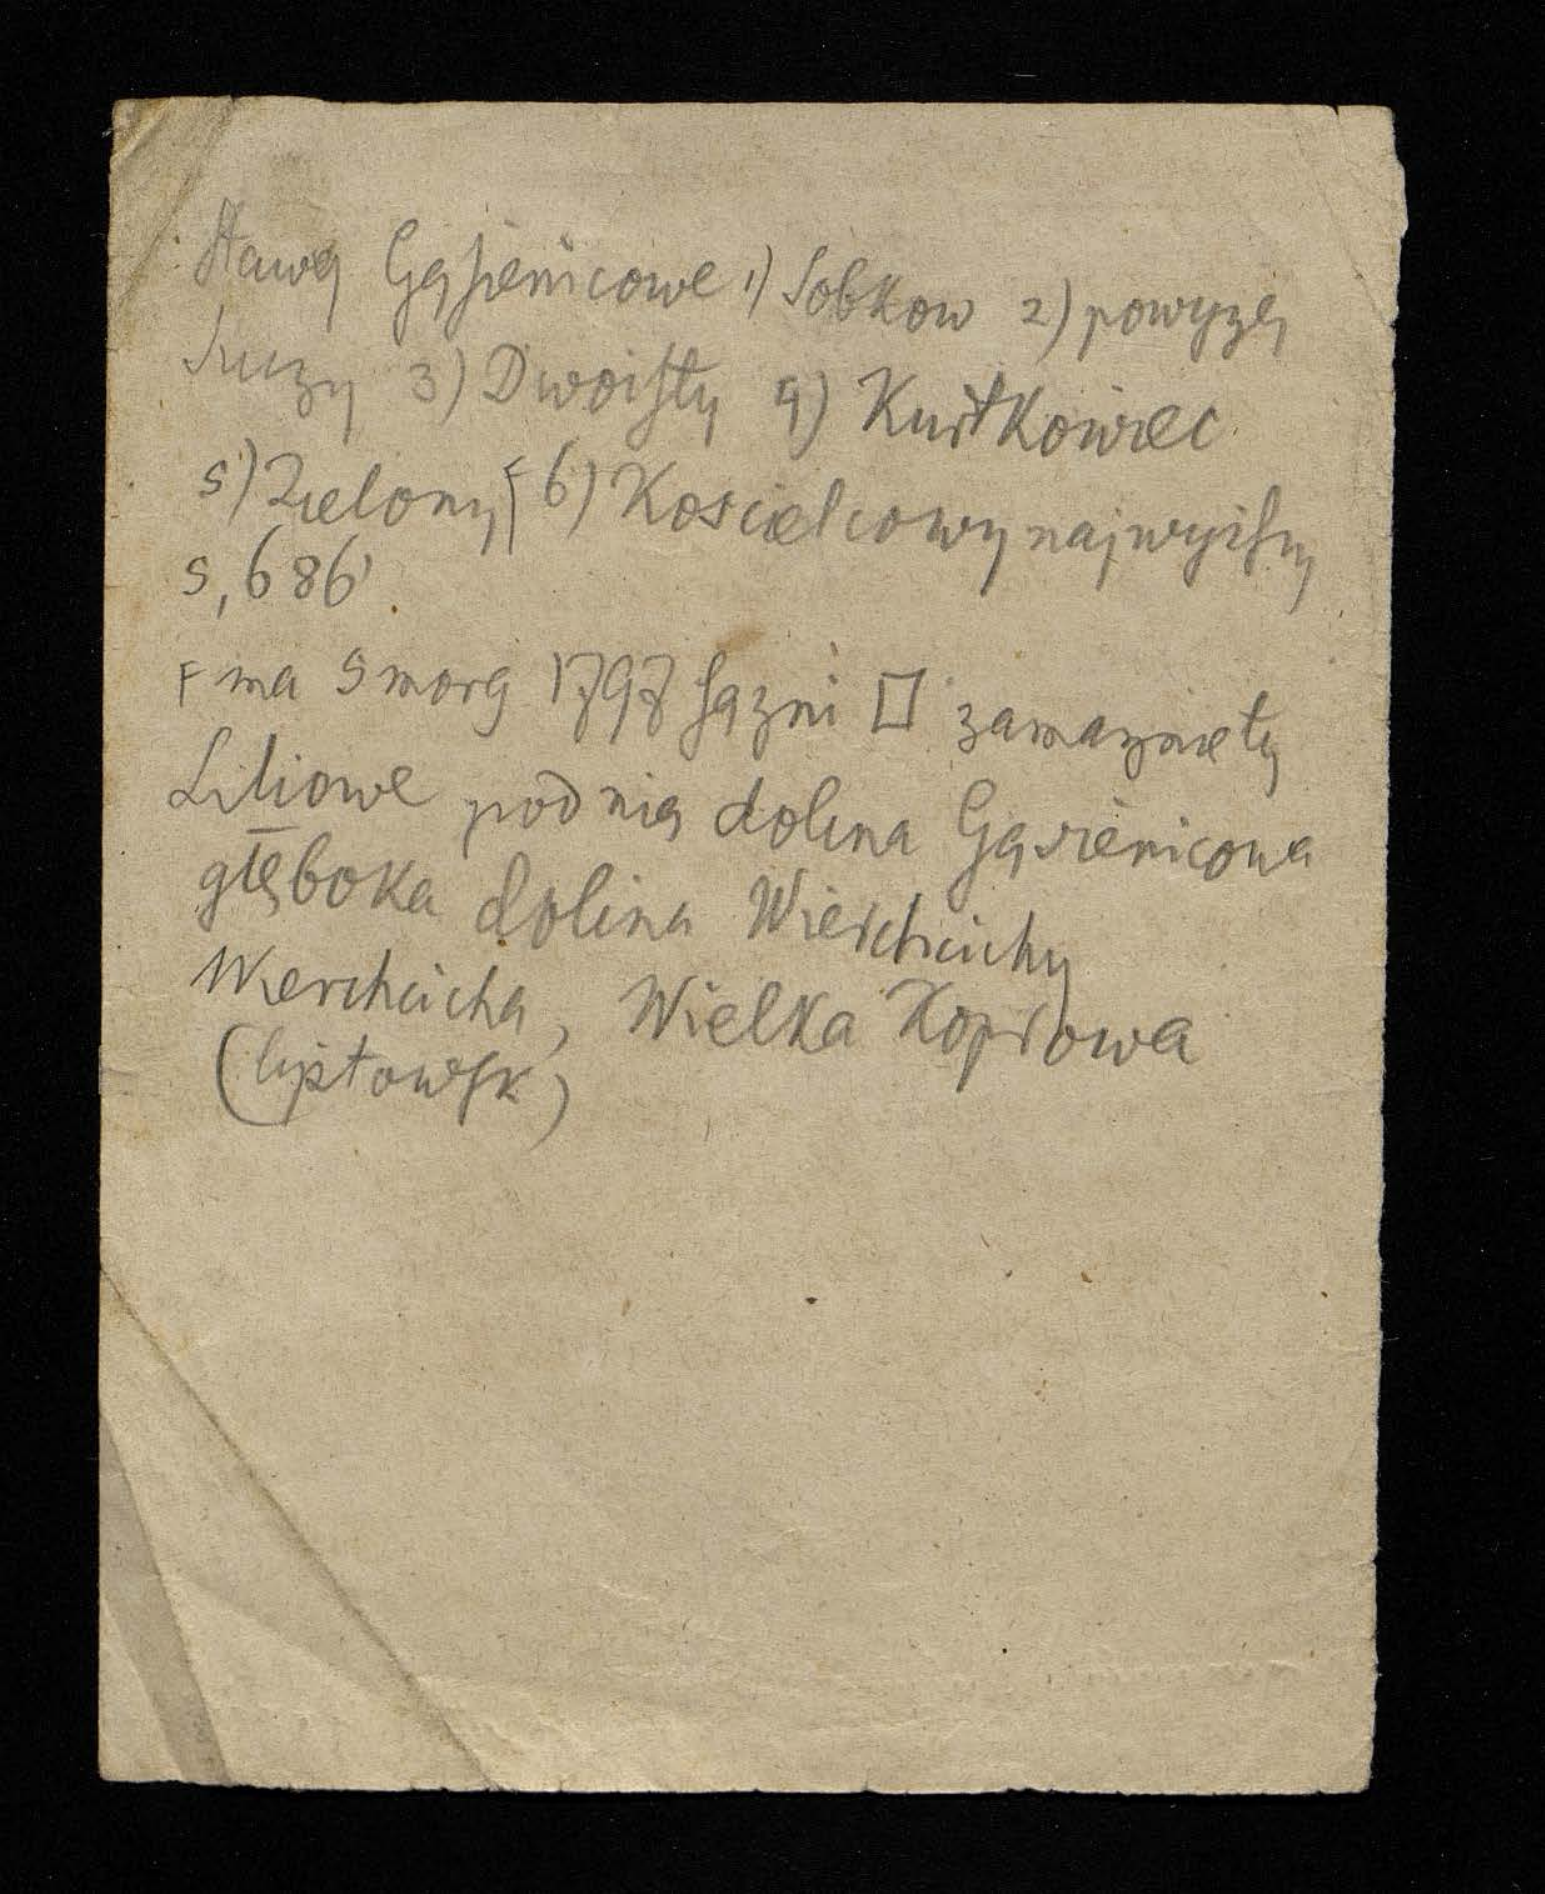 Stawy Gąsienicowe 1) Sobkow 2) powyzej
Suczy 3) Dwoisty 4) Kurtkowiec
5) Zielony F 6) Koscielcowy najwyiszy
5,686'
F ma 5 morg 1797 sązni □ zamarznięty
Liliowe pod nią dolina Gąsienicowa
głęboka dolina Wierchcichy
Wierchcicha, Wielka Koprowa
(liptowsk)